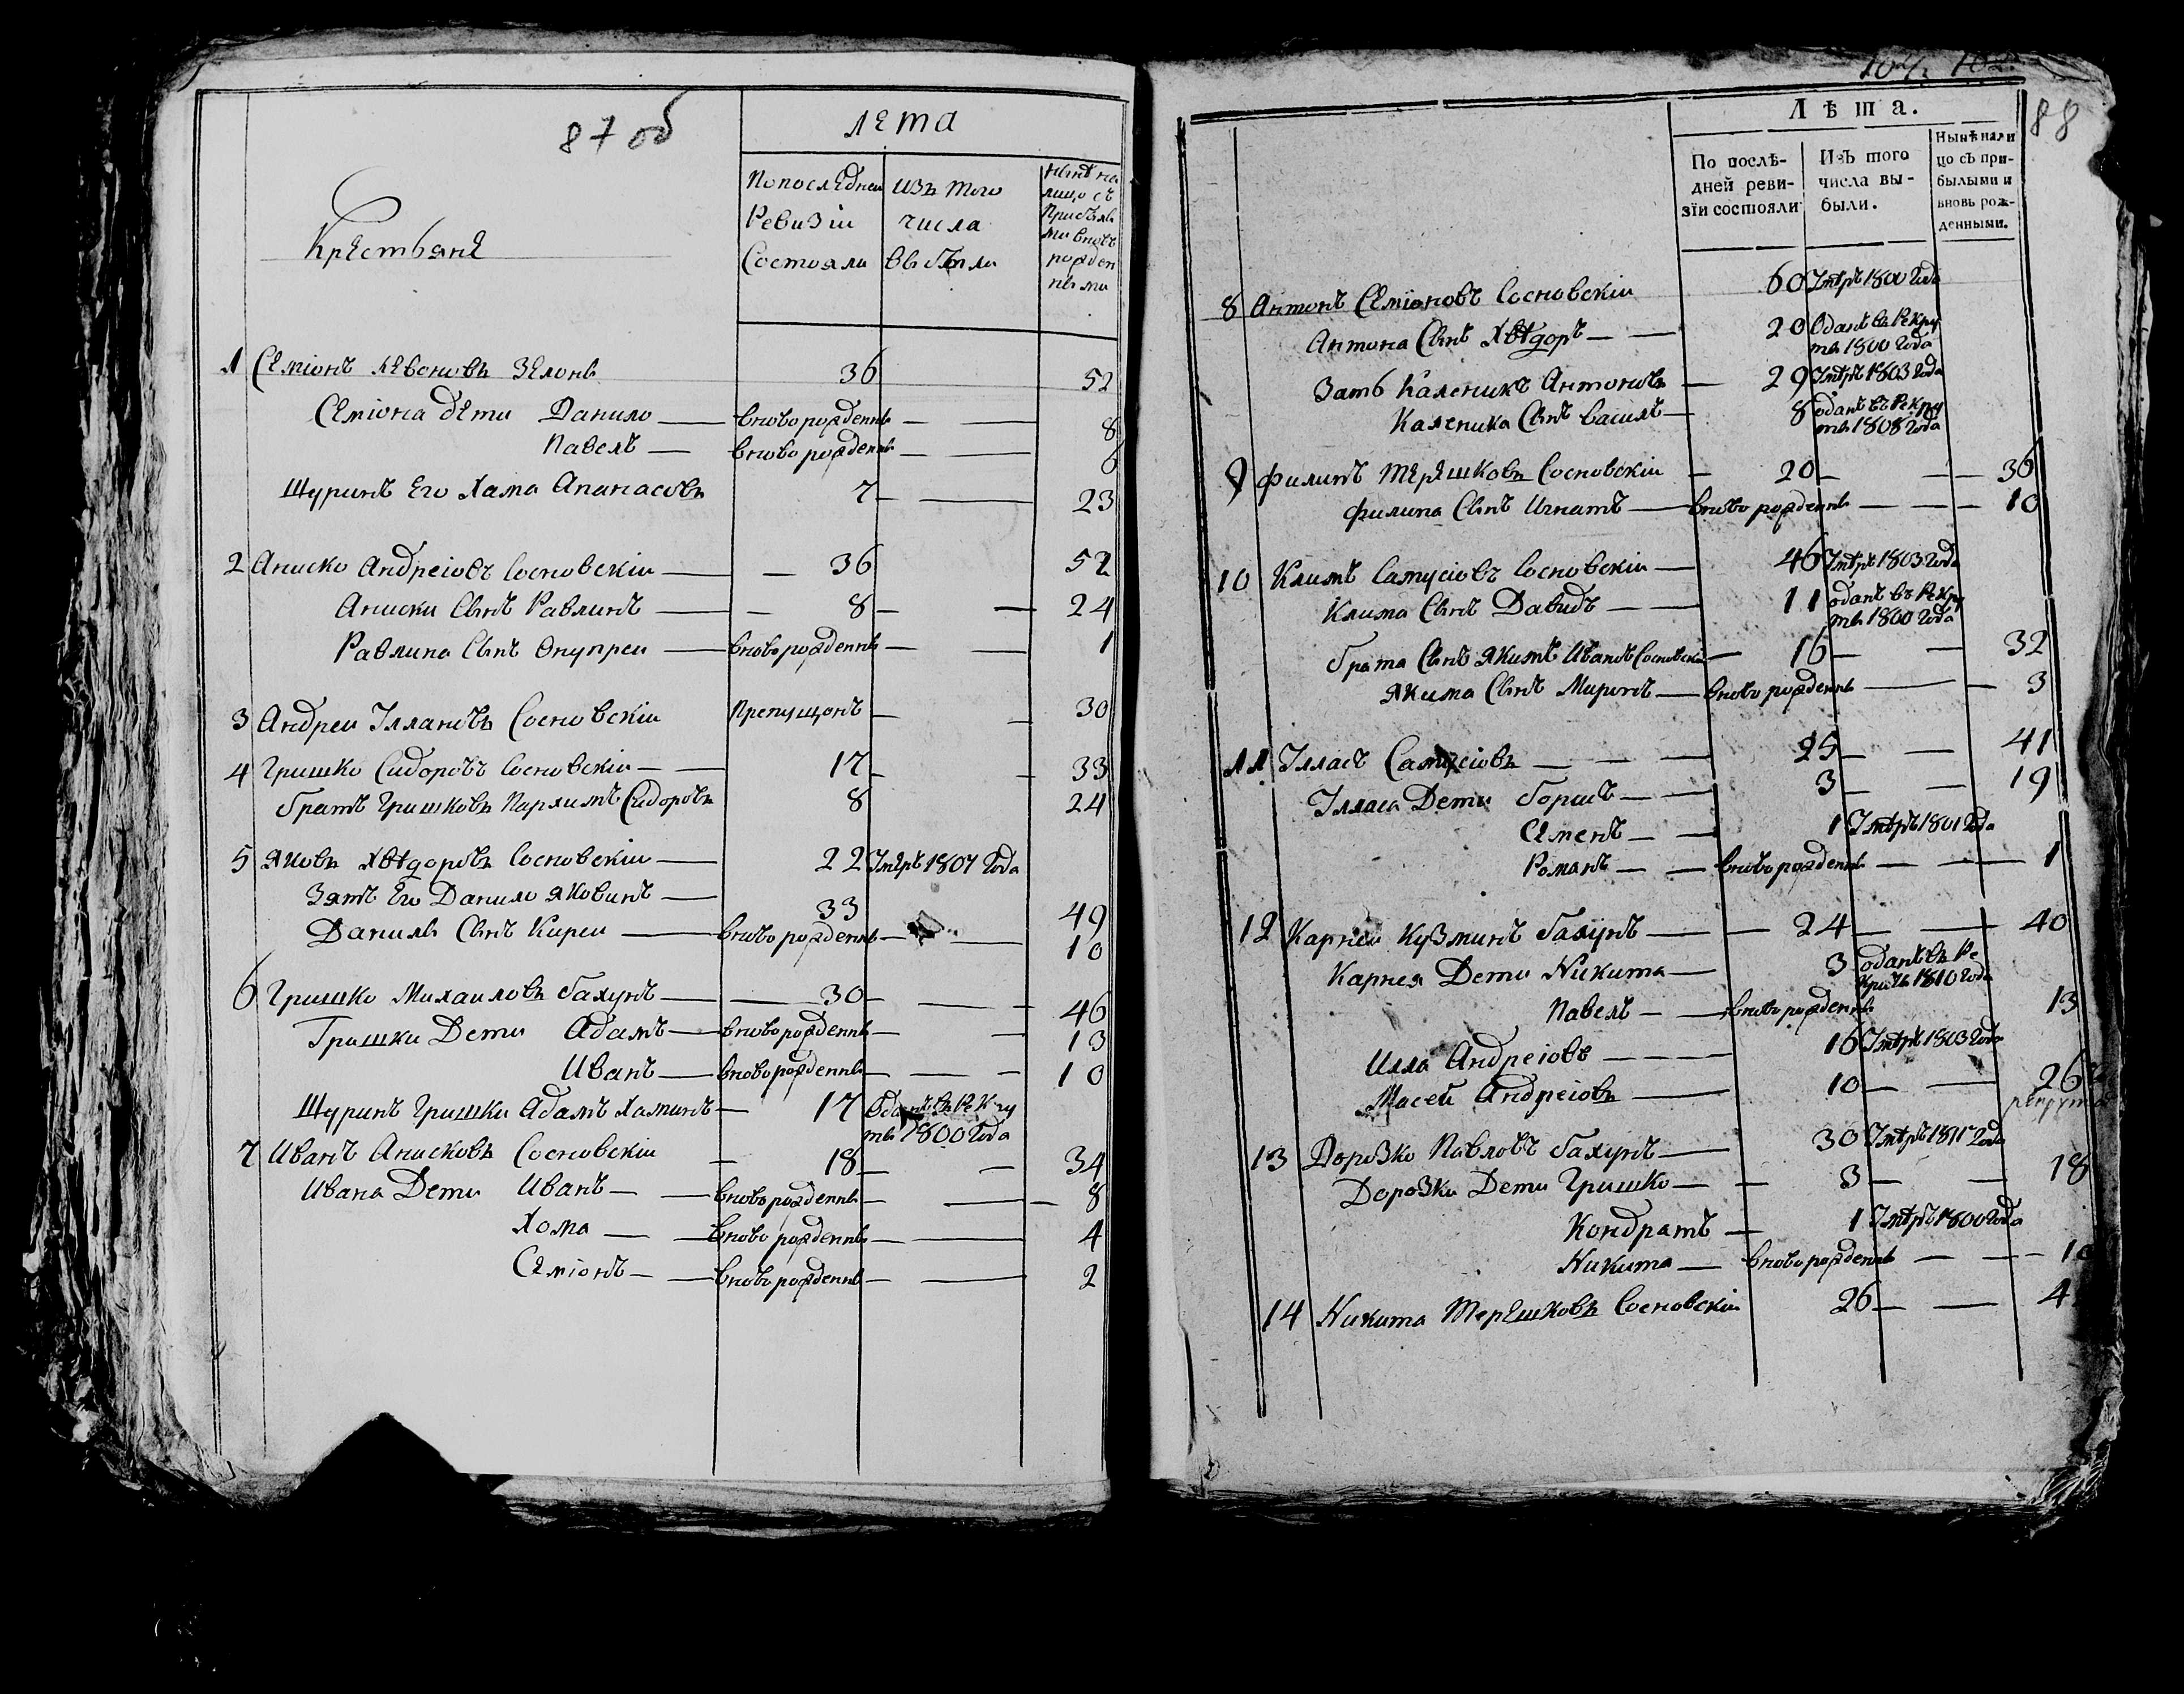 87 об
лета
Крестьяне
По последней
Ревизіи
Состояли
изъ того
числа
выбыли
1 Семіонъ Левоновъ Зелонъ 36 52
Семіона дети Данило — вновь рожденнъ — — 8
Павелъ — вновь рожденнъ — — 6
Щуринъ Его Хама Апанасовъ 7 — — 23
2 Аниско Андреіовъ Сосновскіи — — 36 52
Аниски Сынъ Равлинъ — — 8 — — 24
Равлина Сынъ Онупреи — вновь рожденнъ — — 1
3 Андреи Іллановъ Сосновскіи Препущонъ — — 30
4 Гришко Сидоровъ Сосновскіи — — 17 — — 33
братъ Гришковъ Пархимъ Сидоровъ 8 24
5 Яковъ Хведоровъ Сосновскіи — 22 Умеръ 1807 года
Зять Его Данило Яковинъ — 33 49
Данилы Сынъ Киреи — вновь рожденнъ — — 10
6 Гришко Михаиловъ бахунъ — — 30 — — 46
Гришки Дети Адамъ — вновь рожденнъ — — 13
Иванъ — вновь рожденнъ — — — 10
Щуринъ Гришки Адамъ Хаминъ — 17 Оданъ въ Рекру
ты 1800 Года
7 Иванъ Анисковъ Сосновскіи — 18 — — 34
Ивана Дети Иванъ — — вновь рожденнъ — — — 8
Хома — — вновь рожденнъ — — 4
Семіонъ — — вновь рожденнъ — — 2
88
Лѣта.
По послѣ-
дней реви-
зїи состояли
Изъ того
числа вы-
были.
Нынѣ нали
цо съ при-
былыми и
вновь рож-
денными.
8 Антонъ Семіоновъ Сосновскіи 60 Умѣръ 1800 года
Антона Сынъ Хведоръ — — 20 Оданъ въ Рекру
ты 1800 года
Зять Каленикъ Антоновъ — 29 Умѣръ 1803 года
Каленика Сынъ Василъ — 8 оданъ въ Рекру
ты 1808 года
9 Филипъ Терешковъ Сосновскіи — 20 — — — 36
Филипа Сынъ Игнатъ — вновь рожденнъ — — — 10
10 Климъ Самусіовъ Сосновскіи — 46 Умѣръ 1803 года
Клима Сынъ Давидъ — — 11 оданъ въ Рекру
ты 1800 года
брата Сынъ Якимъ Ивановъ Сосновскіи — 16 — — 32
Якима Сынъ Миронъ — вновь рожденнъ — — 3
11 Ілласъ Самусіовъ — — — — 25 — — 41
Ілласа Дети борисъ — — 3 — — 19
Семенъ — — 1 Умѣръ 1801 года
Романъ — — вновь рожденнъ — — — 1
12 Карнеи Кузминъ бахунъ — — 24 — — — 40
Карнея Дети Никита — 3 оданъ въ Ре
круты 1810 года
Павелъ — — вновь рожденнъ 13
Илла Андреіовъ — — — 16 Умѣръ 1803 года
Масеи Андреіовъ — — 10 — — 26
13 Дорозко Павловъ бахунъ — 30 Умѣръ 1811 года
Дорозки Дети Гришко — — 3 — — 18
Кондратъ — 1 Умѣръ 1800 года
Никита — вновь рожденнъ — — — 10
14 Никита Терешковъ Сосновскіи 26 — — 4